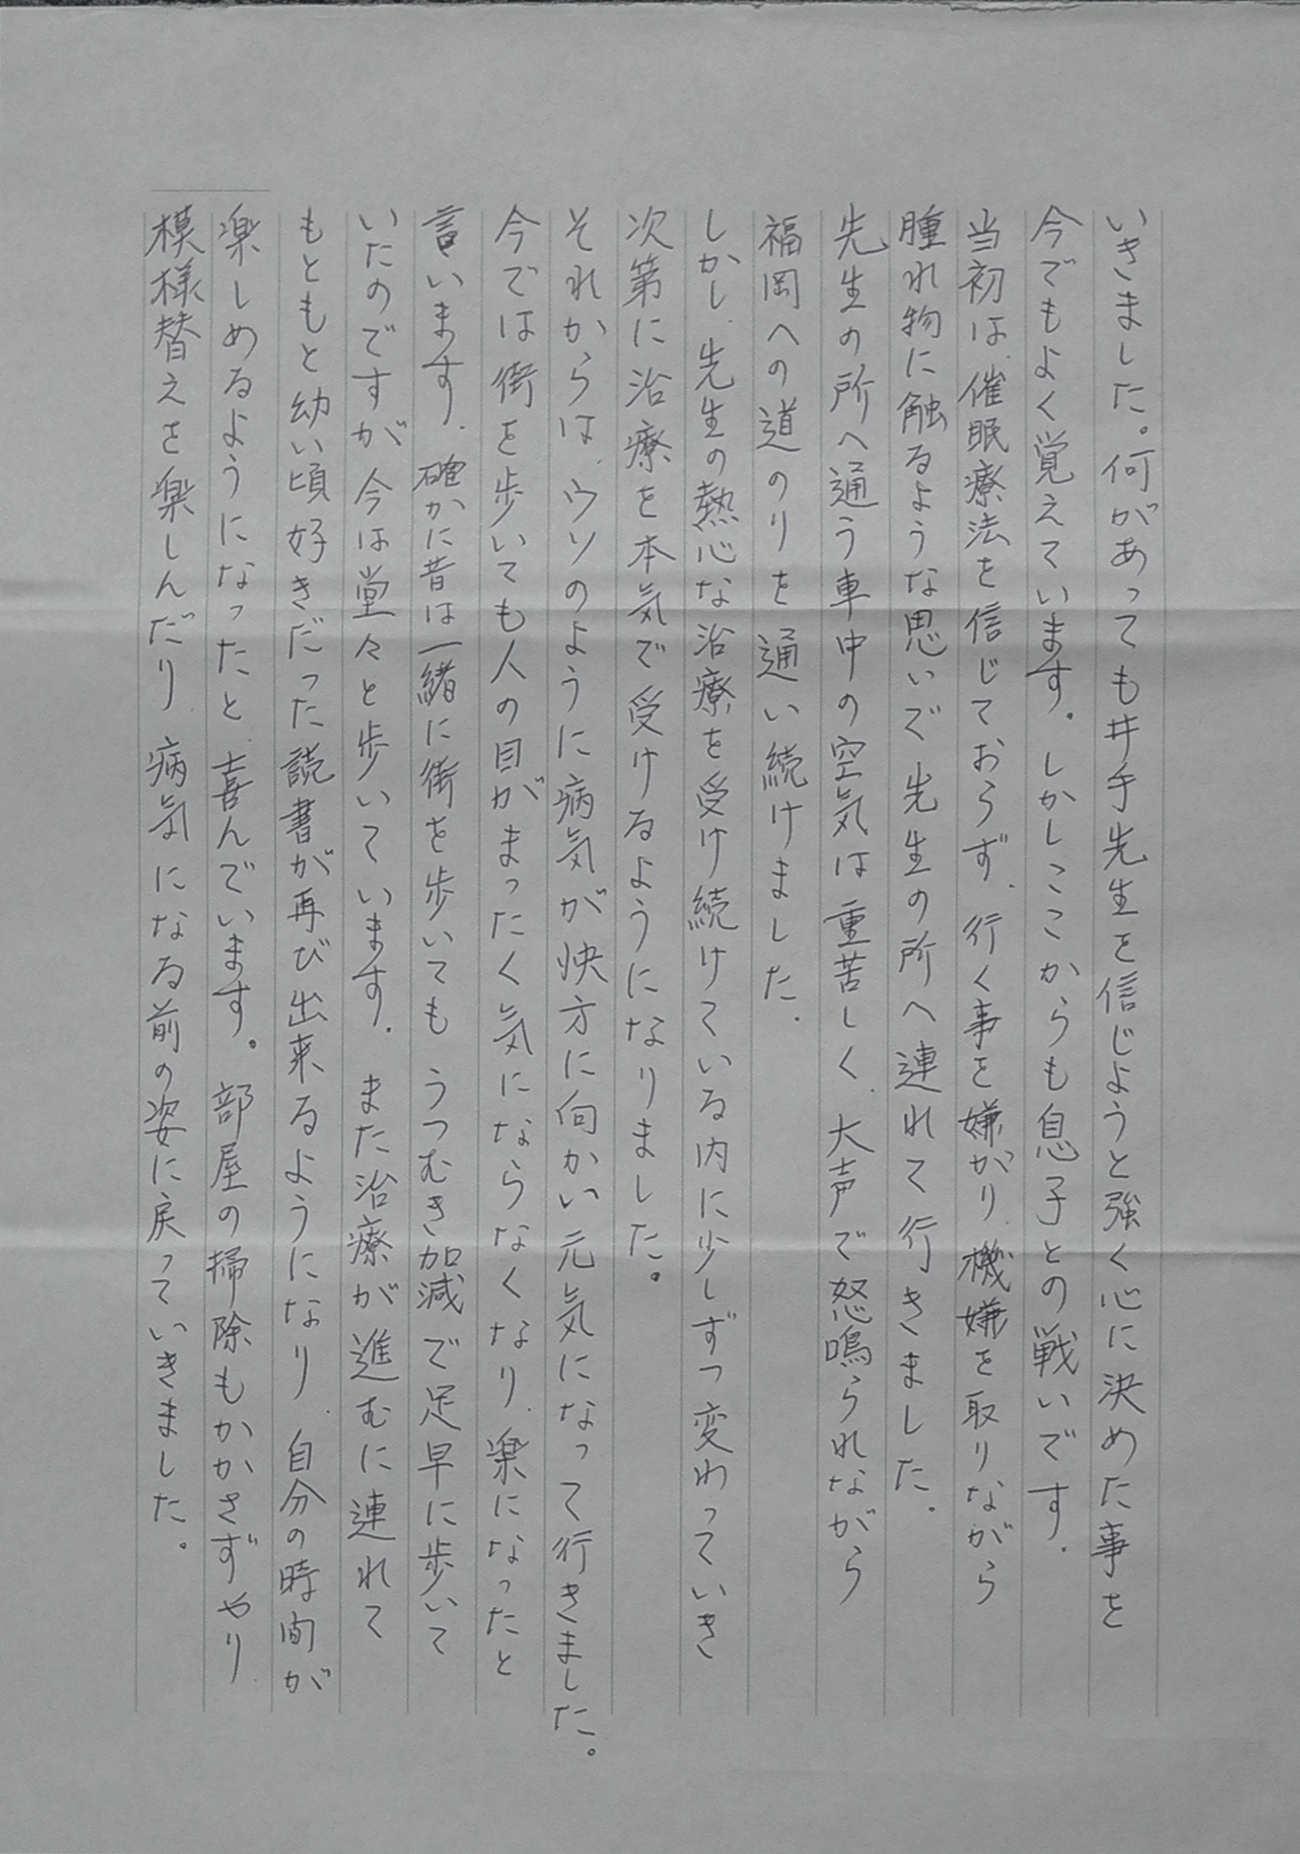 いきました。何があっても井手先生を信じようと強く心に決めた事を
今でもよく覚えています。しかしここからも息子との戦いです.
当初は.催眠療法を信じておらず.行く事を嫌がり.機嫌を取りながら
腫れ物に触るような思いで先生の所へ連れて行きました.
先生の所へ通う車中の空気は重苦しく.大声で怒鳴られながら
福岡への道のりを通い続けました.
しかし.先生の熱心な治療を受け続けている内に少しずつ変わっていき
次第に治療を本気で受けるようになりました。
それからは.ウソのように病気が快方に向かい元気になって行きました。
今では街を歩いても人の目がまったく気にならなくなり.楽になったと
言います.確かに昔は一緒に街を歩いてもうつむき加減で足早に歩いて
いたのですが今は堂々と歩いています.また治療が進むに連れて
もともと幼い頃好きだった読書が再び出来るようになり.自分の時間が
楽しめるようになったと.喜んでいます。部屋の掃除もかかさずやり.
模様替えを楽しんだり.病気になる前の姿に戻っていきました。